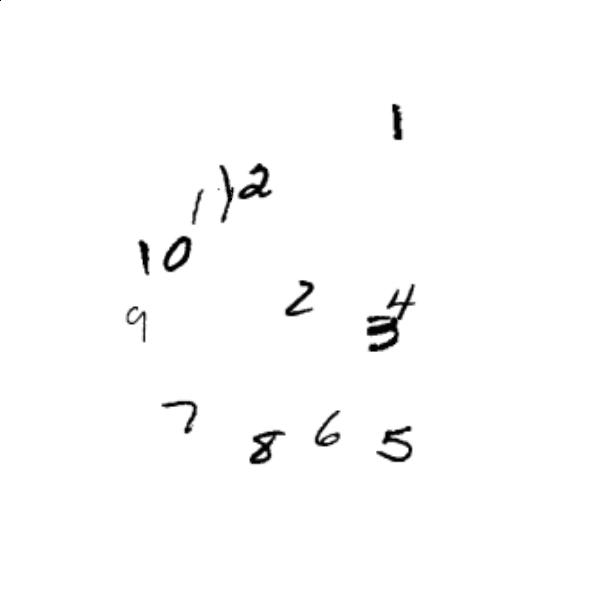 1
1 12
10
2 4
9 3
7
8 6 5